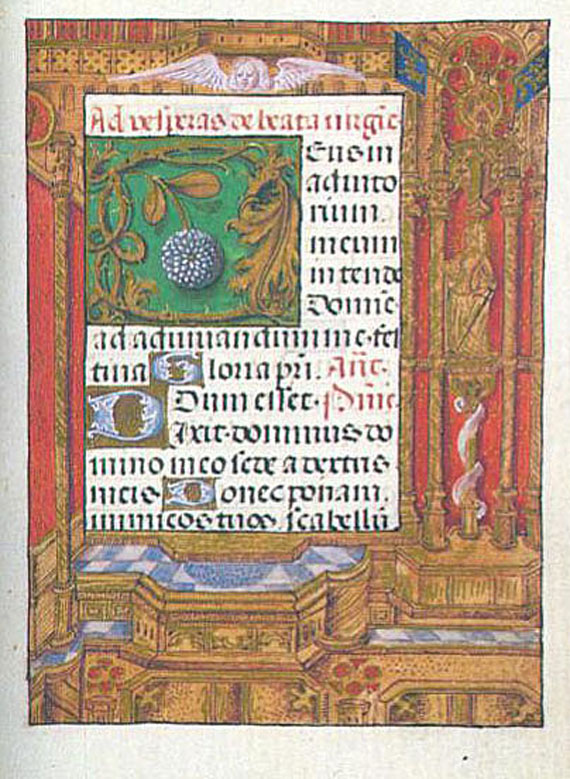 Ad vesperas de beata virgĩe
Eus in
adiuto
rium
meum
intende
Domĩe
ad adiuuandum me festina Gloria pr̃i. Añt.
Dum esset. ps̃mĩe
Dixit dominus do
mino meo sede a dextris
meis Donec ponam
inimicos tuos, scabellũ